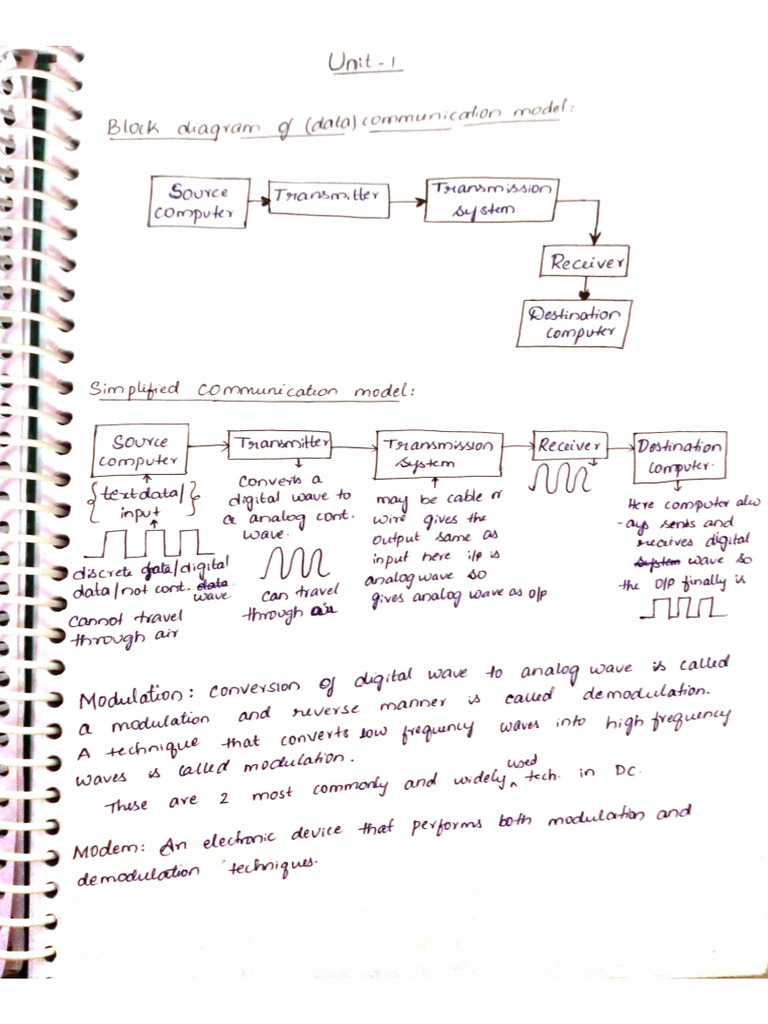 Unit-1
Block diagram of (data) communication model:
Source computer
Transmitter
Transmission system
Receiver
Destination computer
Simplified communication model:
Source computer
Transmitter
Transmission system
Receiver
Destination computer.
{text data/
input}
discrete data/digital
data/not cont. data wave
cannot travel
through air
converts a
digital wave to
a analog cont.
wave.
can travel
through air
may be cable or
wire gives the
output same as
input here i/p is
analog wave so
gives analog wave as o/p
Here computer alw
-ays sents and
receives digital
system wave so
the O/P finally is
Modulation: conversion of digital wave to analog wave is called
a modulation and reverse manner is called demodulation.
A technique that converts low frequency waves into high frequency
waves is called modulation.
These are 2 most commonly and widely used tech. in DC.
Modem: An electronic device that performs both modulation and
demodulation techniques.